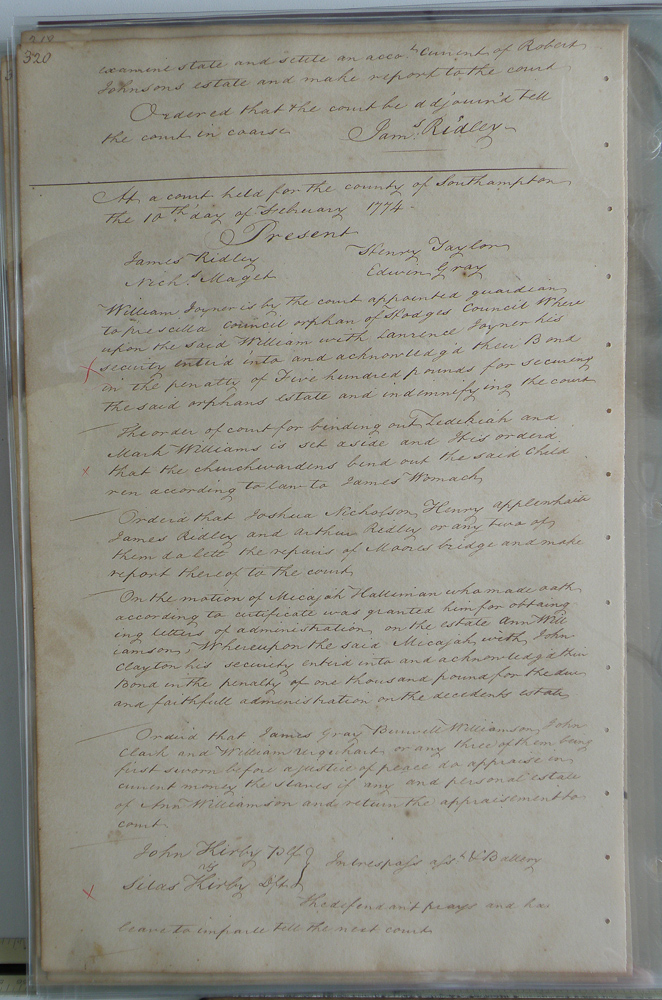 320
examine state and setle an acco.t Current of Robert
Johnsons estate and make report to the court
Ordered that the court be adjourn'd tell
the court in coarse Jam.s Ridley
At a court held for the county of Southampton
the 10th day of February 1774
Present
James Ridley Henry Taylor
Nich.s Maget Edwin Gray
William Joyner is by the court appointed guardian
to prescilla Council orphan of Hodges Council Where
upon the said William with Laurence Joyner his
security enter'd into and acknowledg'd their Bond
in the penalty of Five hundred pounds for securing
the said orphans estate and indemnifying the court
The order of court for binding out Zedekiah and
Mark Williams is set aside and Itis orderd
that the churchwardens bind out the said Child
ren according to law to James Womack
Orderd that Joshua Nicholson Henry applewhaite
James Ridley and Arthur Ridley or any two of
them do lett the repairs of Moores bridge and make
report thereof to the court
On the motion of Micajah Halliman who made oath
according to certificate was granted him for obtaing
ing letters of administration on the estate Ann Will
iamson, Whereupon the said Micajah with John
Clayton his security enterd into and acknowledgd their
Bond in the penalty of one thousand pound for the due
and faithfull administration on the decedents estate
Orderd that James Gray Burwell Williamson John
Clark and William Urquhart or any three of them being
first sworn before a justice of peace do appraise in
current money the slaves if any and personal estate
of Ann Williamson and return the appraisement to
court
John Kirby Plf
vs In trespass ass.t & Battery
Silas Kirby Dft
The defendant prays and has
leave to imparle tell the next court